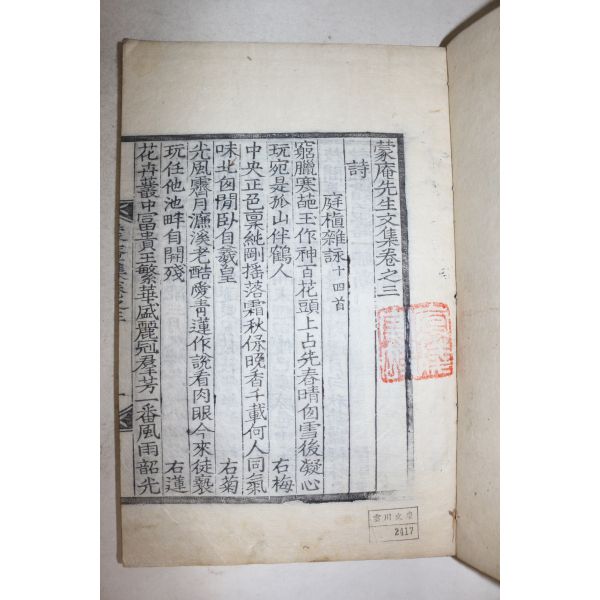 蒙庵先生文集卷之三
詩
庭植雜詠 十四首
窮臘寒葩玉作神百花頭上占先春晴窓雪後凝心
玩宛是孤山伴鶴人 右梅
中央正色稟純剛搖落霜秋保晚香千載何人同氣
味北窓閒臥自羲皇 右菊
光風霽月濂溪老酷愛靑蓮作說看肉眼今來徒褻
玩任他池畔自開殘 右蓮
花卉叢中富貴王繁華盛麗冠羣芳一番風雨韶光
雲川文庫
2417